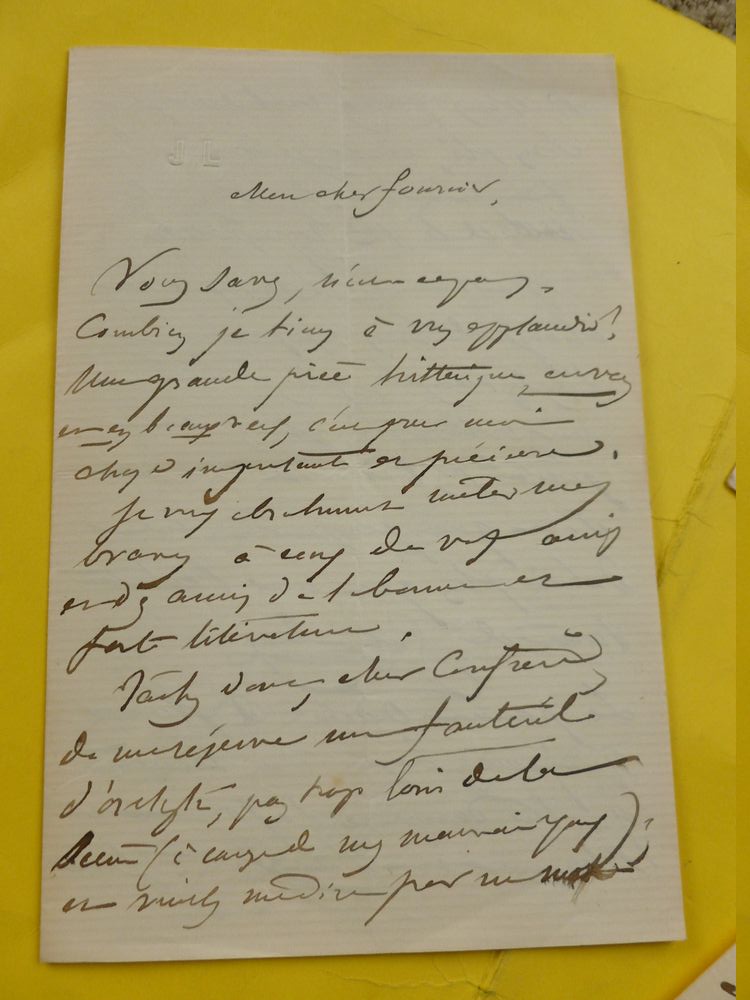 J L
Mon cher Fournier,
Vous savez, n'est-ce pas,
Combien je tiens à vous applaudir!
Une grande pièce historique, en vers
et en beaux vers, c'est pour moi
chose importante et précieuse.
Je veux absolument mêler mes
bravos à ceux de vos amis
et des amis de la bonne et
forte littérature.
Tâchez donc, cher Confrère,
de me réserver un fauteuil
d'orchestre, pas trop loin de la
Scène (à cause de mes mauvais yeux);
et veuillez me dire par un mot